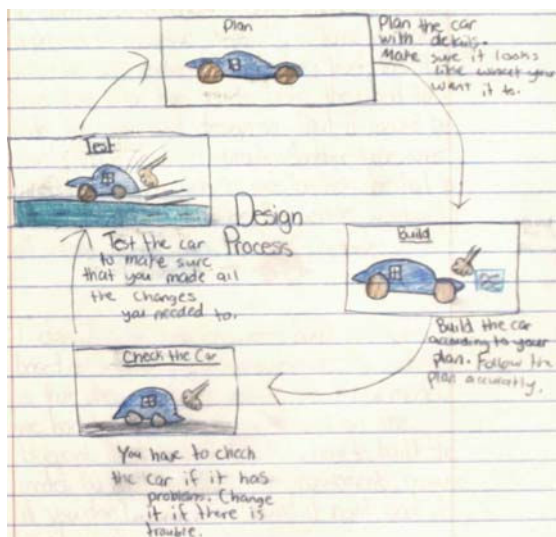 Plan
Plan the car
with details.
Make sure it looks
like
want it to.
Build
Build the car
according to your
plan. Follow the
plan accurately.
Check the Car
You have to check
the car if it has
problems. Change
it if there is
trouble.
Test
Test the car
to make sure
that you made all
the changes
you needed to.
Design
Process